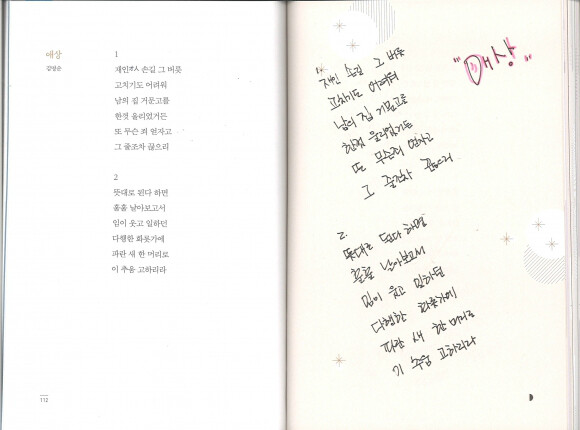 애상
김말봉
1
재인才人 손길 그 버릇
고치기도 어려워
남의 집 거문고를
한껏 울리었거든
또 무슨 죄 얻자고
그 줄조차 끊으리
2
뜻대로 된다 하면
훌훌 날아보고서
임이 웃고 일하던
다행한 화롯가에
파란 새 한 머리로
이 추움 고하리라
112
"애상"
1.
재인 손길 그 버릇
고치기도 어려워
남의 집 거문고를
한껏 울리었거든
또 무슨 죄 얻자고
그 줄조차 끊으리
2.
뜻대로 된다 하면
훌훌 날아보고서
임이 웃고 일하던
다행한 화롯가에
파란 새 한 머리로
이 추움 고하리라